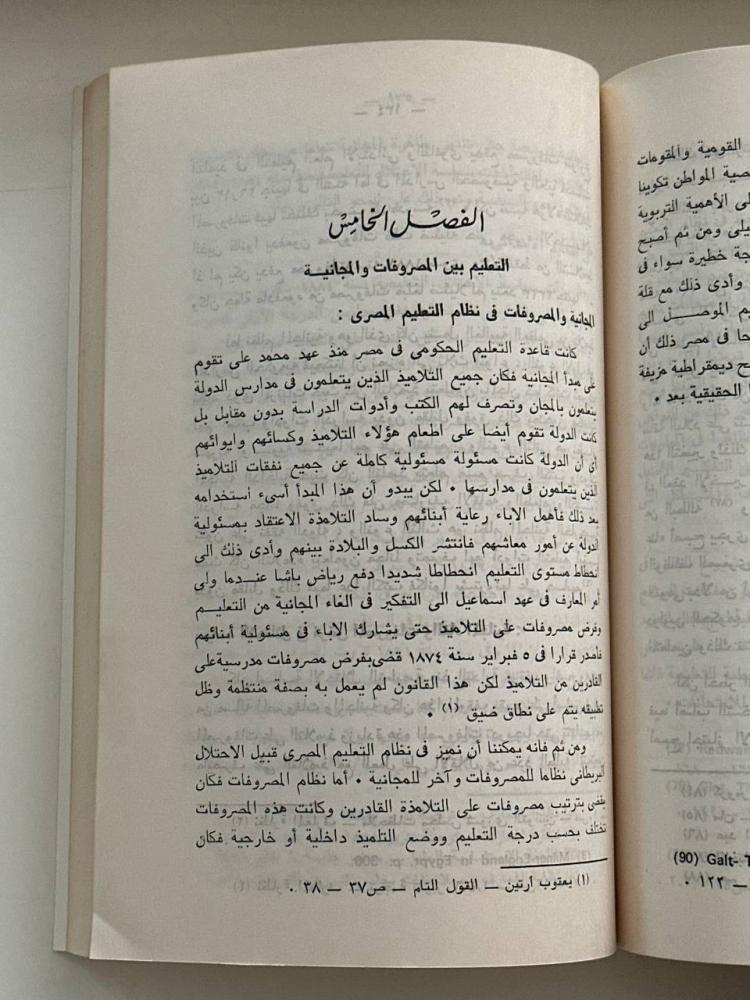 الفصل الخامس
التعليم بين المصروفات والمجانية
المجانية والمصروفات فى نظام التعليم المصرى :
كانت قاعدة التعليم الحكومى فى مصر منذ عهد محمد على تقوم
على مبدأ المجانية فكان جميع التلاميذ الذين يتعلمون فى مدارس الدولة
يتعلمون بالمجان وتصرف لهم الكتب وأدوات الدراسة بدون مقابل بل
كانت الدولة تقوم أيضا على اطعام هؤلاء التلاميذ وكسائهم وايوائهم
أى أن الدولة كانت مسئولة مسئولية كاملة عن جميع نفقات التلاميذ
الذين يتعلمون فى مدارسها . لكن يبدو أن هذا المبدأ أسىء استخدامه
بعد ذلك فأهمل الاباء رعاية أبنائهم وساد التلامذة الاعتقاد بمسئولية
الدولة عن أمور معاشهم فانتشر الكسل والبلادة بينهم وأدى ذلك الى
انحطاط مستوى التعليم انحطاطا شديدا دفع رياض باشا عندما ولى
أمر المعارف فى عهد اسماعيل الى التفكير فى الغاء المجانية من التعليم
وفرض مصروفات على التلاميذ حتى يشارك الاباء فى مسئولية أبنائهم
فأصدر قرارا فى ٥ فبراير سنة ١٨٧٤ قضى بفرض مصروفات مدرسية على
القادرين من التلاميذ لكن هذا القانون لم يعمل به بصفة منتظمة وظل
تطبيقه يتم على نطاق ضيق (١) .
ومن ثم فانه يمكننا أن نميز فى نظام التعليم المصرى قبيل الاحتلال
البريطانى نظاما للمصروفات وآخر للمجانية . أما نظام المصروفات فكان
يقضى بترتيب مصروفات على التلامذة القادرين وكانت هذه المصروفات
تختلف بحسب درجة التعليم ووضع التلميذ داخلية أو خارجية فكان
(١) يعقوب أرتين — القول التام — ص٣٧ — ٣٨ .
القومية والمقومات
صية المواطن تكوينا
لى الأهمية التربوية
يلى ومن ثم أصبح
جة خطيرة سواء فى
وأدى ذلك مع قلة
يم الموصل الى
حا فى مصر ذلك أن
ح ديمقراطية مزيفة
الحقيقية بعد .
(90) Galt- T
— ١٢٢ .